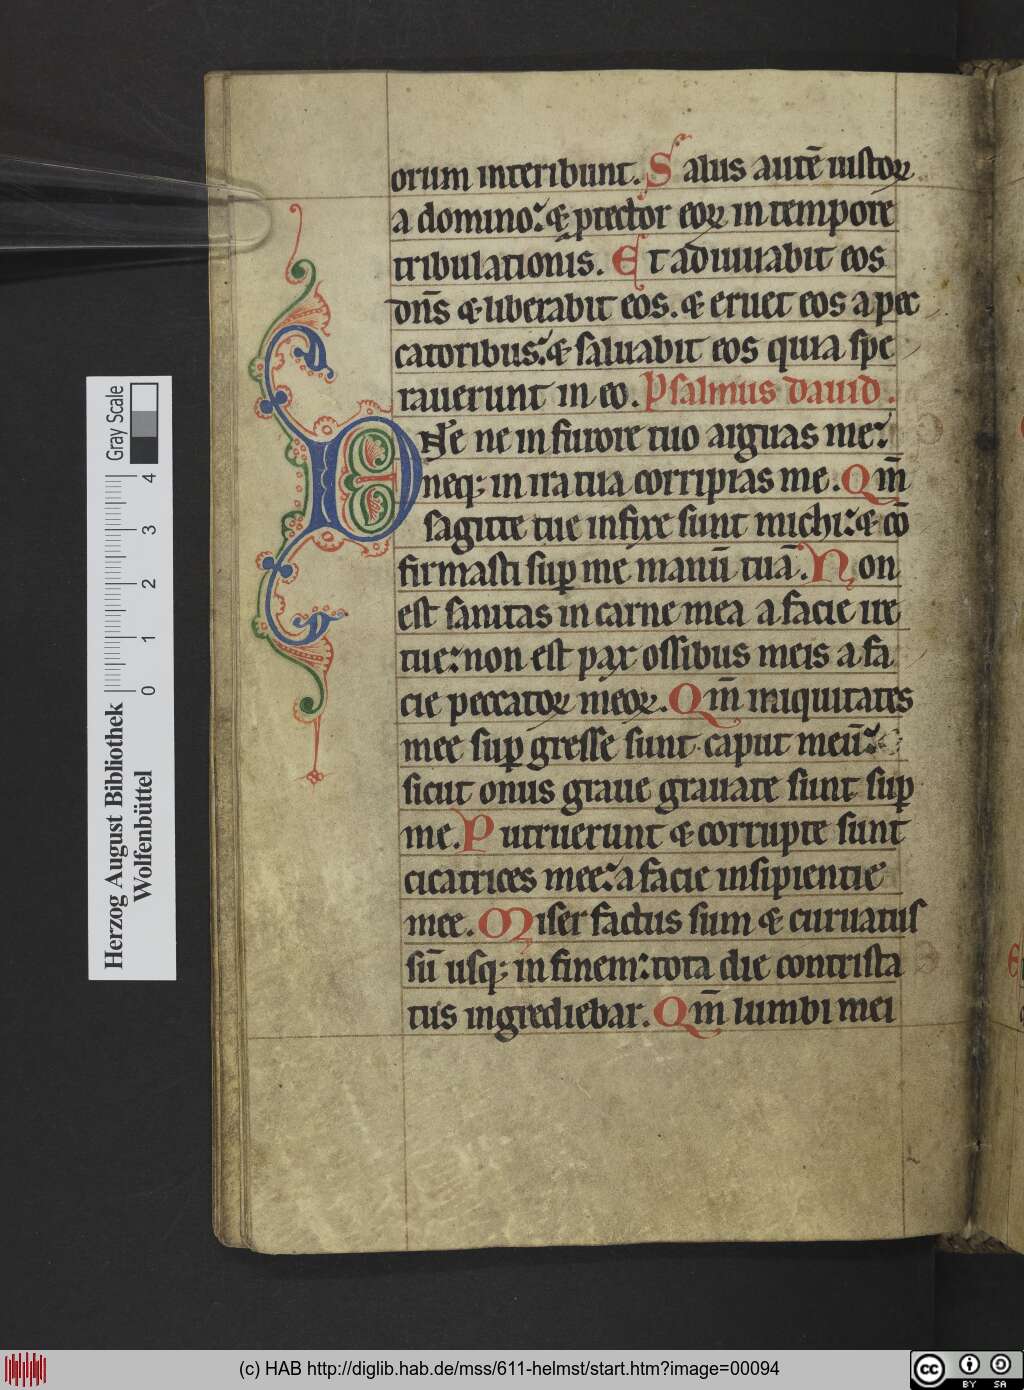 orum interibunt. Salus autē iustoꝝ
a domino: & ꝓtector eoꝝ in tempore
tribulationis. Et adiuuabit eos
dn̄s & liberabit eos. & eruet eos a pec
catoribus: & saluabit eos quia spe
rauerunt in eo. Psalmus dauid.
Dn̄e ne in furore tuo arguas me:
neq; in ira tua corripias me. Qm̄
sagitte tue infixe sunt michi: & cō
firmasti suꝑ me manū tuā. Non
est sanitas in carne mea a facie ire
tue: non est pax ossibus meis a fa
cie peccatoꝝ meoꝝ. Qm̄ iniquitates
mee suꝑ gresse sunt caput meū:
sicut onus graue grauate sunt suꝑ
me. Putruerunt & corrupte sunt
cicatrices mee: a facie insipientie
mee. Miser factus sum & curuatus
sū usq; in finem: tota die contrista
tus ingrediebar. Qm̄ lumbi mei
Gray Scale
0 1 2 3 4
Herzog August Bibliothek
Wolfenbüttel
(c) HAB http://diglib.hab.de/mss/611-helmst/start.htm?image=00094
cc BY SA